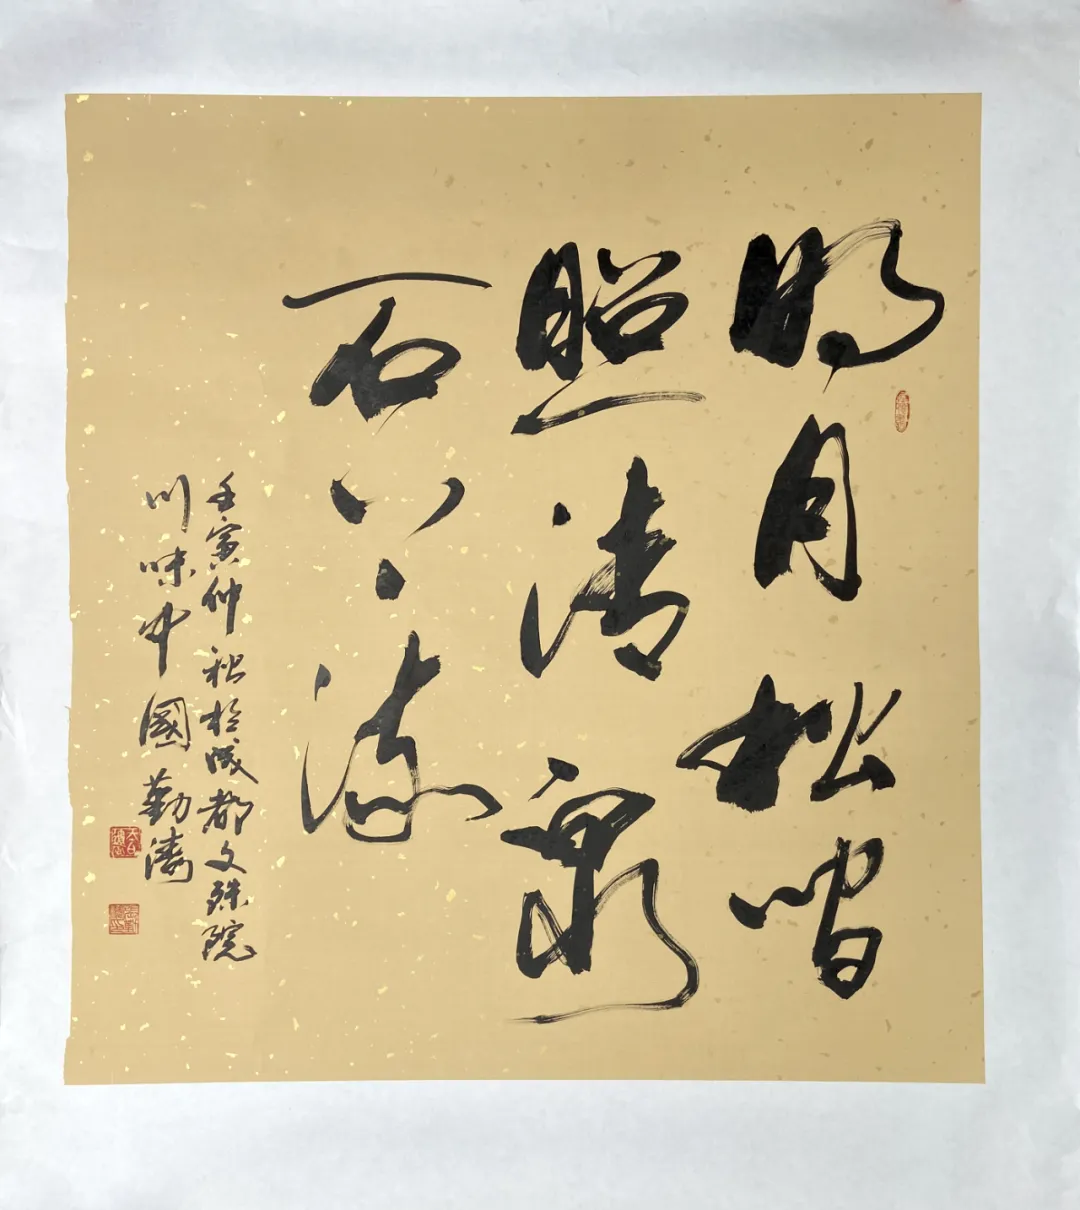 明月松間
照清泉
石上流
壬寅仲秋於成都文殊院
川味中國勤濤